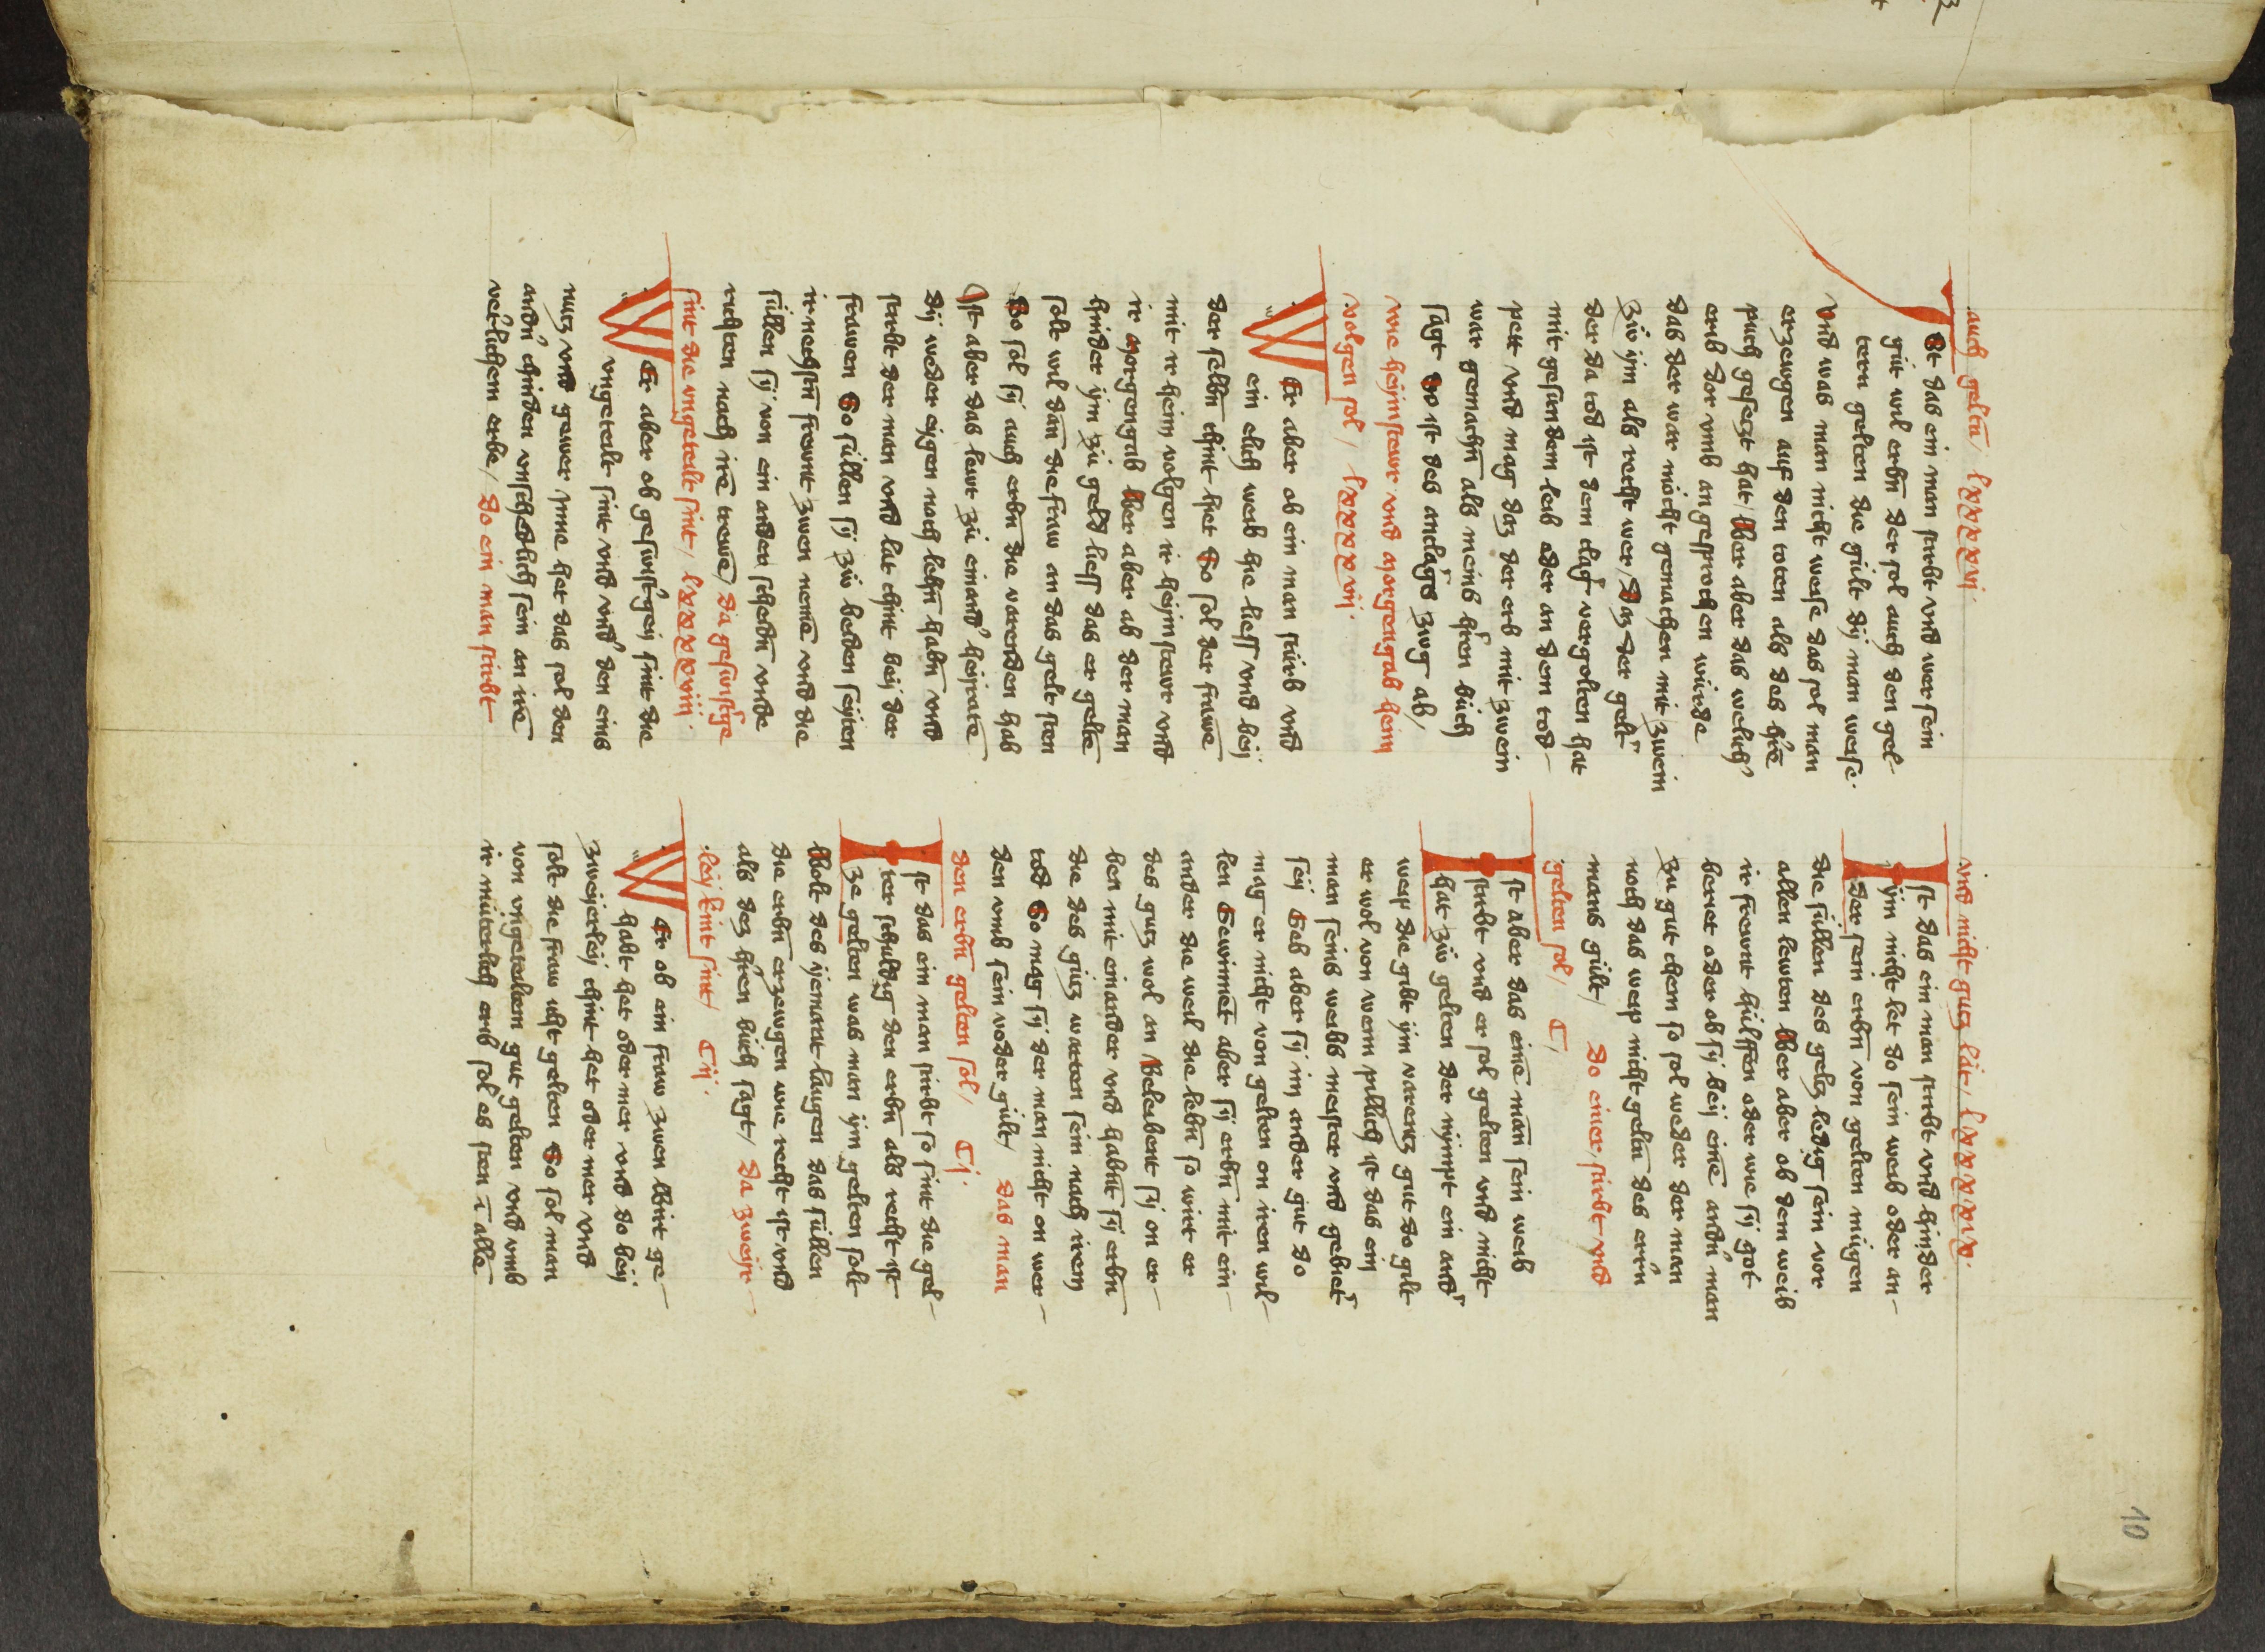 auch gelt&#773;n / lxxxxvi ·
Ist das ein man stirbt vnd wer sein
gut wil erbn̄ der sol auch den gel-
tern gelten die gült dÿ man weise ·
Vnd was man nicht weise das sol man
erzewgen auf den toten als des hrē
puch geseczt hat / Wer aber das welich
erib dor vmb angesprochen würde
das der war möcht gemachen mit zwein
zw ÿm als recht wer / Daz der gelt
der da tod ist dem clag vergolten hat
mit gesundem leib oder an dem tod-
pett vnd mag daz der erb mit zwein
war gemachn̄ als meins hren buch
sagt So ist des anclags zwg ab /
wie heÿmstewr vnd morgengab heim
volgen sol / lxxxxvii ·
WEr aber ob ein man stürb vnd
ein elich weib hie liess vnd beÿ
der selbn̄ chint het So sol der frawē
mit ir heim volgen ir heÿmstewr vnd
ir Morgengab Wer aber ob der man
hinder ÿm zu geld liess das er geltē
solt wil dan̄ die fraw an das gelt sten
So sol sÿ auch erbn̄ die varenden hab
Ist aber das lewt zu einand heÿratē
dÿ weder eÿgen noch lehn̄ habn̄ vnd
stirbt der man vnd lat chint beÿ der
frawen So süllen sÿ zw beiden seÿten
ir nechstn̄ frewnt zwen nemē vnd die
süllen sÿ von ein ander scheidn̄ vnde
richten nach irē trewē / da geswistge
sint die vngeteilt sint / lxxxxviii ·
WEr aber ob geswist&#x27;geÿ sint die
vngeteilt sint vnd vnd den eins
nucz vnd gewer jnne het das sol den
andn chinden vnschedlich sein an irē
veterlichem erbe / do ein man stirbt
vnd nicht gucz lät / lxxxxix ·
Ist das ein man stirbt vnd hinder
ÿm nicht let do sein weib oder an-
der sein erbn̄ von gelten mügen
die süllen des geltz ledig sein vor
allen lewten Wer aber ob dem weib
ir frewnt hülffen oder wie sÿ got
beriet oder ob sÿ beÿ einē andn man
zu gut chem so sol weder der man
noch das weip nicht geltn̄ des ern
mans gült / do einer stirbt vnd
gelten sol / C /
Ist aber das einē man̄ sein weib
stirbt vnd er sol gelten vnd nicht
hat zw gelten der nÿmpt ein and
weip die gibt ÿm varentz gut do gilt
er wol von wenn pillich ist das ein
man seins weibs meister vnd gebiet
seÿ Geb aber sÿ im ander gut do
mag er nicht von gelten on iren wil-
len Gewinnet aber sÿ erbn̄ mit ein-
ander die weil die lebn̄ so wirt er
des gutz wol an Beleibent sÿ on er-
ben mit einander vnd habnt sÿ erbn̄
die des gutz warten sein nach irem
tod So mag sÿ der man nicht on wer-
den vmb sein voder gült / das man
den erbn̄ gelten sol / Ci ·
Ist das ein man stirbt so sint die gel-
ter schuldig den erbn̄ als recht ist
ze gelten was man ÿm gelten solt
Wolt des ÿemant laugen das süllen
die erbn̄ erzewgen wie recht ist vnd
als dez hren buch sagt / da zweÿr-
leÿ kint sint / Cii ·
WEr ob ein fraw zwen Wirt ge-
habt het oder mer vnd do beÿ
zweÿerleÿ chint het oder mer vnd
solt die fraw icht gelten So sol man
von vngetailtem gut gelten vnd vmb
ir müterlich erib sol es sten ī alle
10